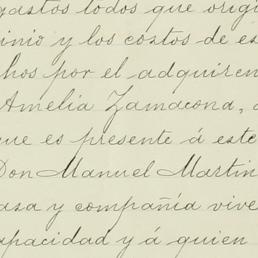 gastos todos que origi
inio y los costos de es
chos por el adquiren
Amelia Zamacona, a
que es presente á este
Don Manuel Martin
asa y compañía vive
apacidad y á quien